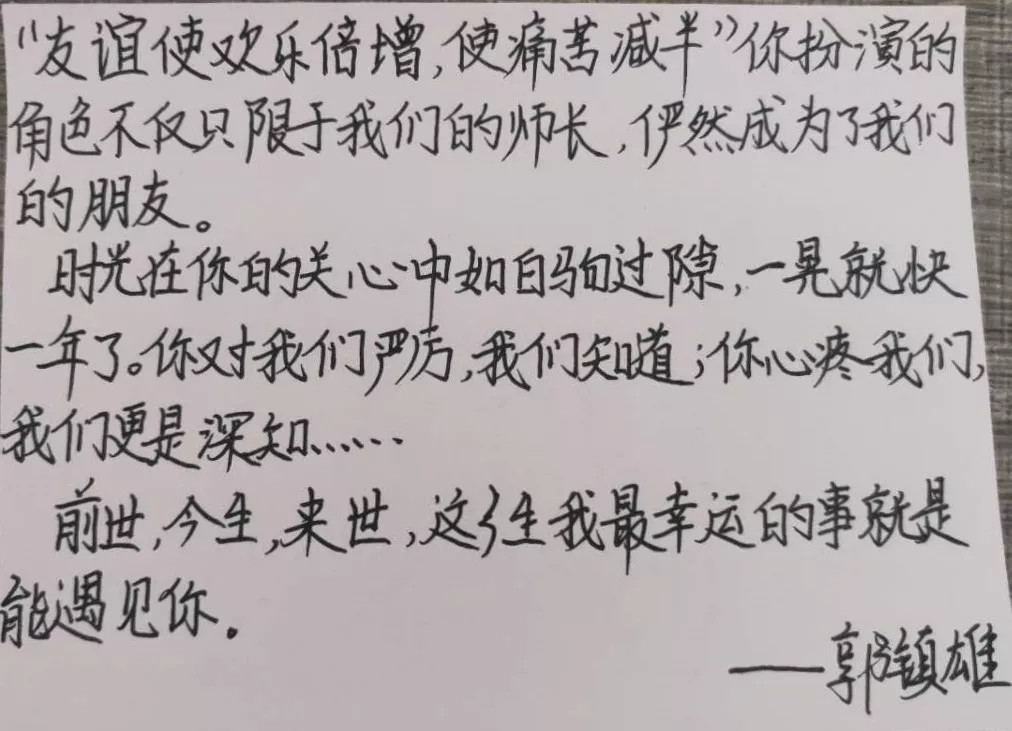 “友谊使欢乐倍增，使痛苦减半”你扮演的
角色不仅只限于我们的师长，俨然成为了我们
的朋友。
时光在你的关心中如白驹过隙，一晃就快
一年了。你对我们严厉，我们知道；你心疼我们，
我们更是深知……
前世，今生，来世，这个生我最幸运的事就是
能遇见你。
——郭镇雄